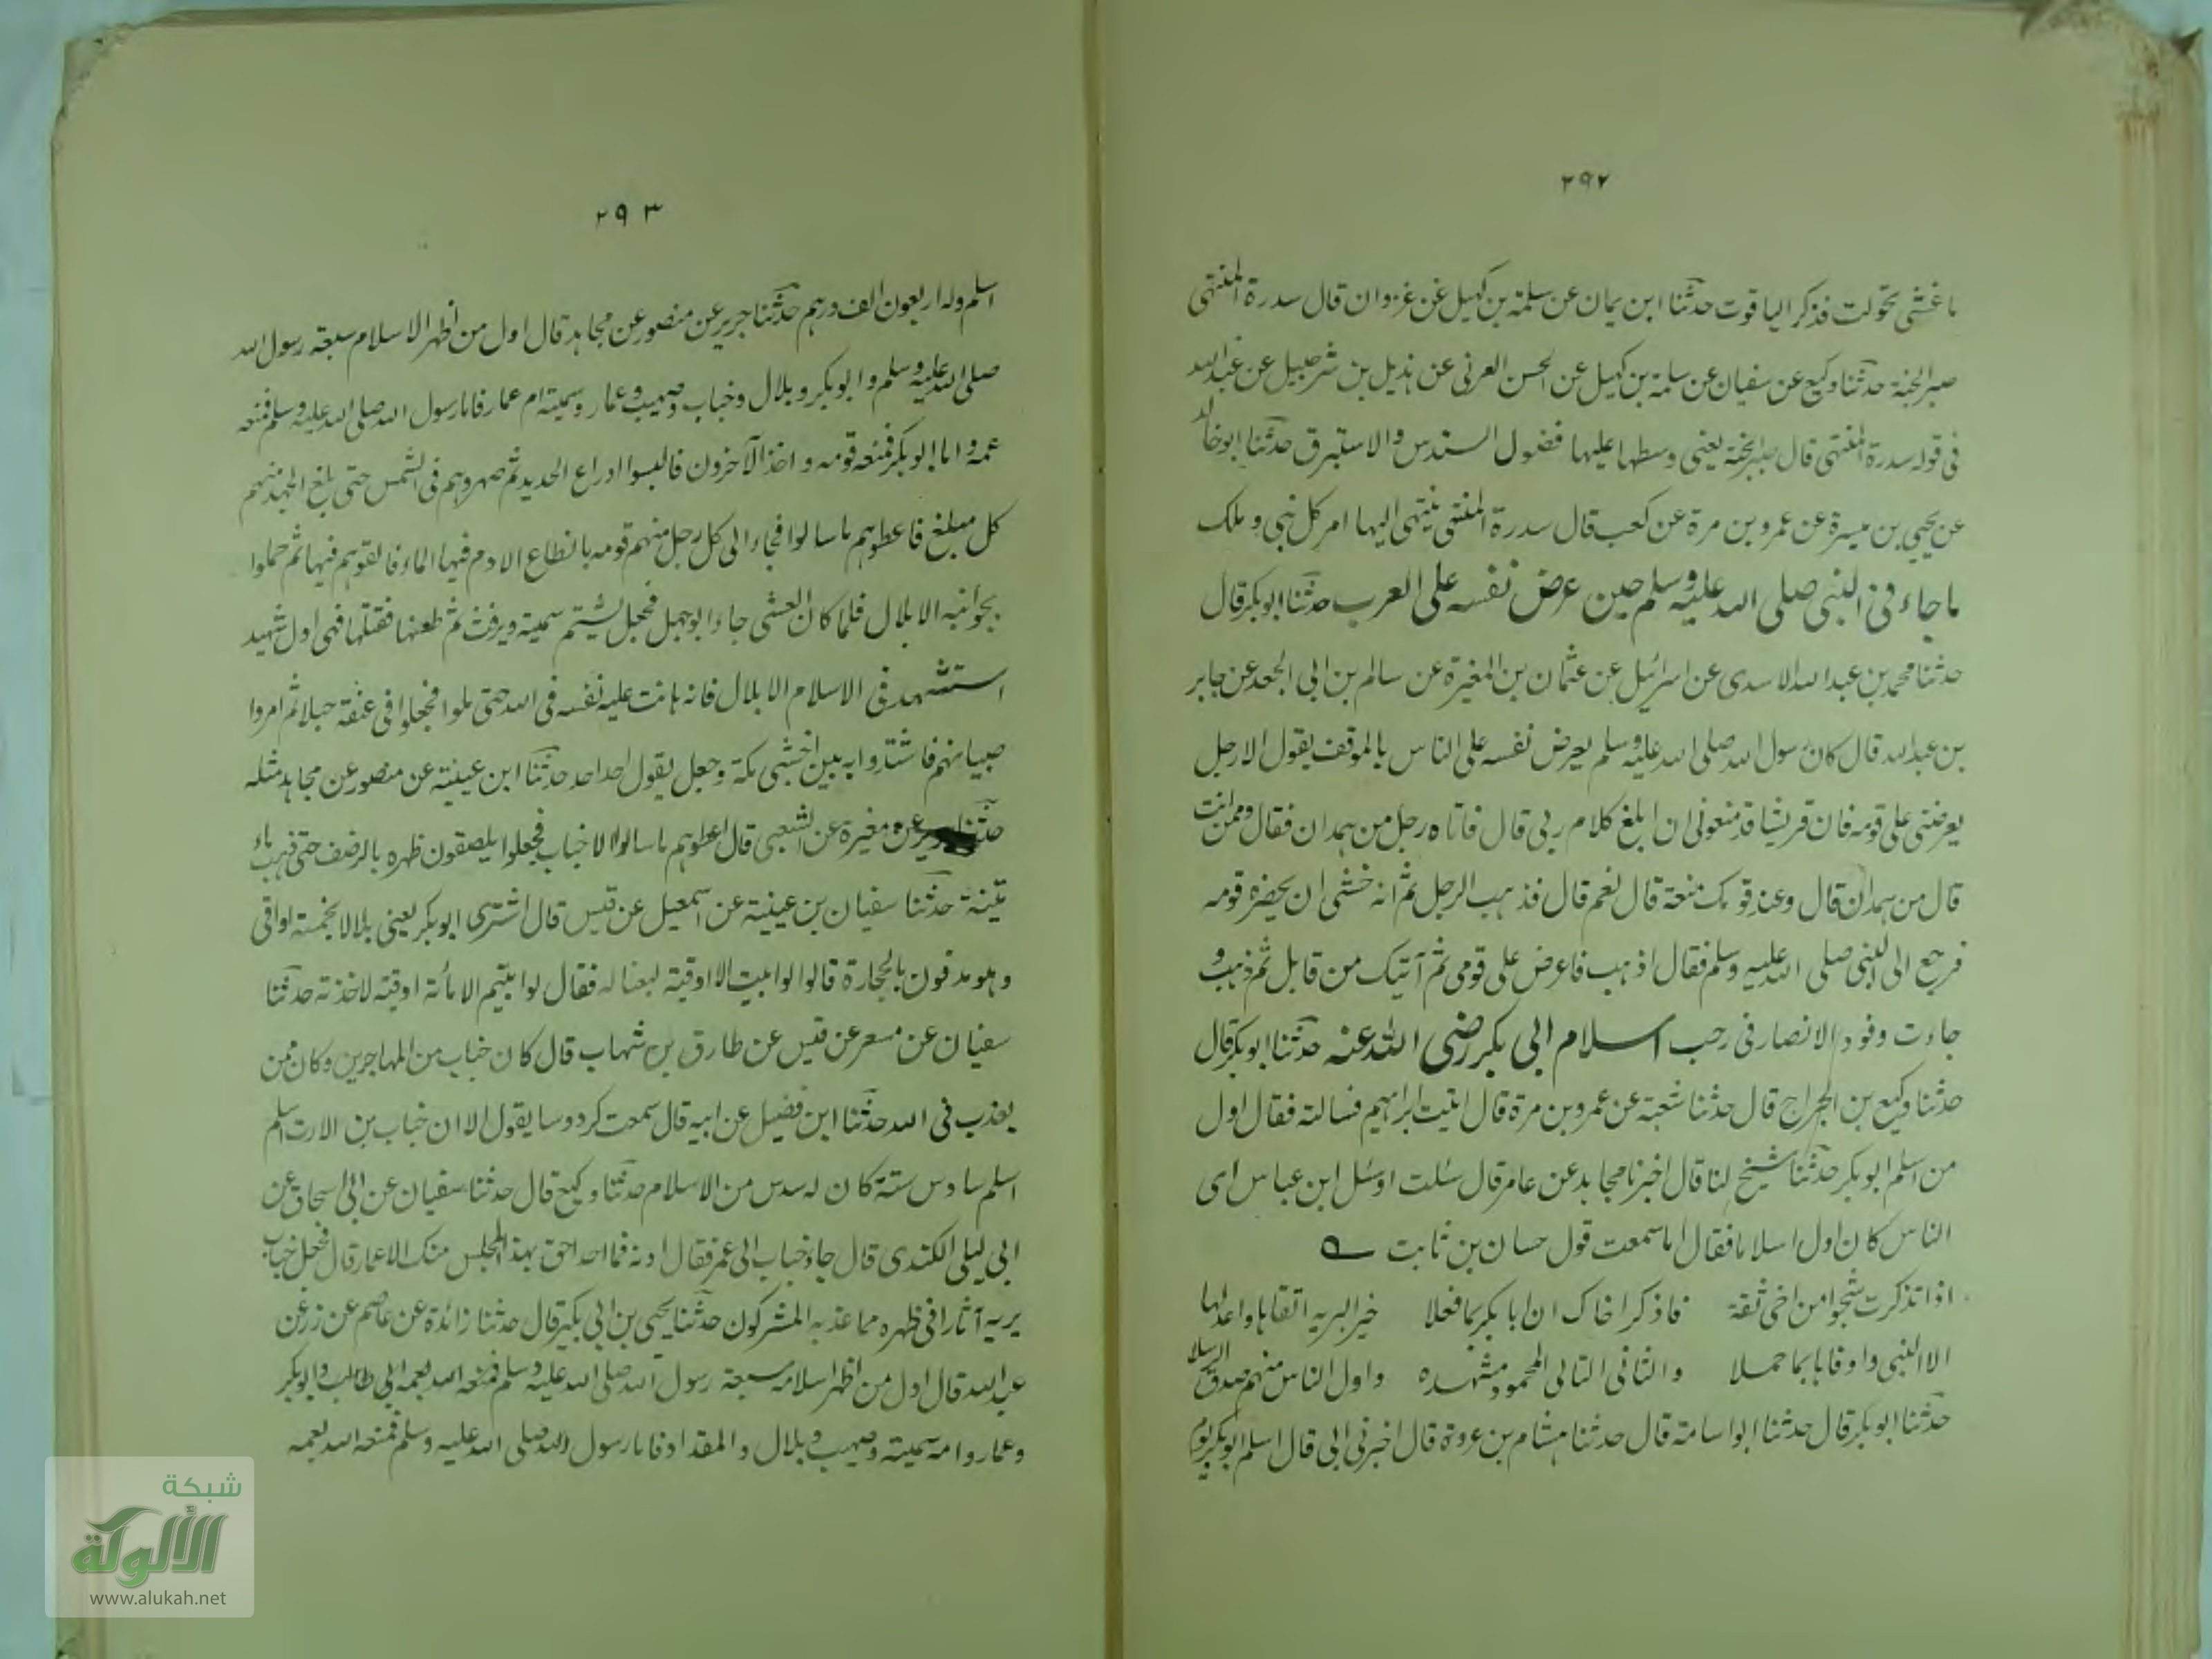 ٢٩٢
ما غشى تحولت فذكر الياقوت حدثنا ابن يمان عن سلمة بن كهيل عن غزوان قال سدرة المنتهى
صبر الجنة حدثنا وكيع عن سفيان عن سلمة بن كهيل عن الحسن العرني عن هذيل بن شرحبيل عن عبد الله
في قوله سدرة المنتهى قال صبر الجنة يعني وسطها عليها فضول السندس والاستبرق حدثنا ابو خالد
عن يحيى بن ميسرة عن عمرو بن مرة عن كعب قال سدرة المنتهى ينتهي اليها امر كل نبي وملك
ما جاء في النبي صلى الله عليه وسلم حين عرض نفسه على العرب حدثنا ابو بكر قال
حدثنا محمد بن عبد الله الاسدي عن اسرائيل عن عثمان بن المغيرة عن سالم بن ابي الجعد عن جابر
بن عبد الله قال كان رسول الله صلى الله عليه وسلم يعرض نفسه على الناس بالموقف يقول الا رجل
يعرضني على قومه فان قريشا قد منعوني ان ابلغ كلام ربي قال فاتاه رجل من همدان فقال وممن انت
قال من همدان قال وعند قومك منعة قال نعم قال فذهب الرجل ثم انه خشي ان يخفره قومه
فرجع الى النبي صلى الله عليه وسلم فقال اذهب فاعرض على قومي ثم آتيك من قابل ثم ذهب و
جاءت وفود الانصار في رجب اسلام ابي بكر رضي الله عنه حدثنا ابو بكر قال
حدثنا وكيع بن الجراح قال حدثنا شعبة عن عمرو بن مرة قال اتيت ابراهيم فسالته فقال اول
من اسلم ابو بكر حدثنا شيخ لنا قال اخبرنا مجالد عن عامر قال سئلت او سئل ابن عباس اي
الناس كان اول اسلاما فقال اما سمعت قول حسان بن ثابت
اذا تذكرت شجوا من اخي ثقة فاذكر اخاك ابا بكر بما فعلا خير البريه اتقاها واعدلها
الا النبي واوفاها بما حملا والثاني التالي المحمود مشهده واول الناس منهم صدق الرسلا
حدثنا ابو بكر قال حدثنا ابو اسامة قال حدثنا هشام بن عروة قال اخبرني ابي قال اسلم ابو بكر يوم
٢٩٣
اسلم وله اربعون الف درهم حدثنا جرير عن منصور عن مجاهد قال اول من اظهر الاسلام سبعة رسول الله
صلى الله عليه وسلم وابو بكر وبلال وخباب وصهيب وعمار وسمية ام عمار فاما رسول الله صلى الله عليه وسلم فمنعه
عمه واما ابو بكر فمنعه قومه واخذ الآخرون فالبسوا ادراع الحديد ثم صهروهم في الشمس حتى بلغ الجهد منهم
كل مبلغ فاعطوهم ما سالوا فجاء الى كل رجل منهم قومه بانطاع الادم فيها الماء فالقوهم فيها ثم حملوا
بجوانبه الا بلال فلما كان العشي جاء ابو جهل فجعل يشتم سمية ويرفث ثم طعنها فقتلها فهي اول شهيد
استشهد في الاسلام الا بلال فانه هانت عليه نفسه في الله حتى ملوا فجعلوا في عنقه حبلا ثم امروا
صبيانهم فاشتدوا به بين اخشبي مكة وجعل يقول احد احد حدثنا ابن عيينة عن منصور عن مجاهد مثله
حدثنا جرير عن مغيرة عن الشعبي قال اعطوهم ما سالوا الا خباب فجعلوا يلصقون ظهره بالرضف حتى ذهب ماء
متنيه حدثنا سفيان بن عيينة عن اسمعيل عن قيس قال اشترى ابو بكر يعني بلالا بخمسة اواقي
وهو مدفون بالحجارة قالوا لو ابيت الا اوقية لبعناكه فقال لو ابيتم الا مائة اوقية لاخذته حدثنا
سفيان عن مسعر عن قيس عن طارق بن شهاب قال كان خباب من المهاجرين وكان ممن
يعذب في الله حدثنا ابن فضيل عن ابيه قال سمعت كردوسا يقول الا ان خباب بن الارت اسلم
اسلم سادس ستة كان له سدس من الاسلام حدثنا وكيع قال حدثنا سفيان عن ابي اسحاق عن
ابي ليلى الكندي قال جاء خباب الى عمر فقال ادنه فما احد احق بهذا المجلس منك الا عمار قال فجعل خباب
يريه آثارا في ظهره مما عذبه المشركون حدثنا يحيى بن ابي بكير قال حدثنا زائدة عن عاصم عن زر عن
عبد الله قال اول من اظهر اسلامه سبعة رسول الله صلى الله عليه وسلم فمنعه الله بعمه ابي طالب وابو بكر
وعمار وامه سمية وصهيب وبلال والمقداد فاما رسول الله صلى الله عليه وسلم فمنعه الله بعمه
شبكة
الألوكة
www.alukah.net